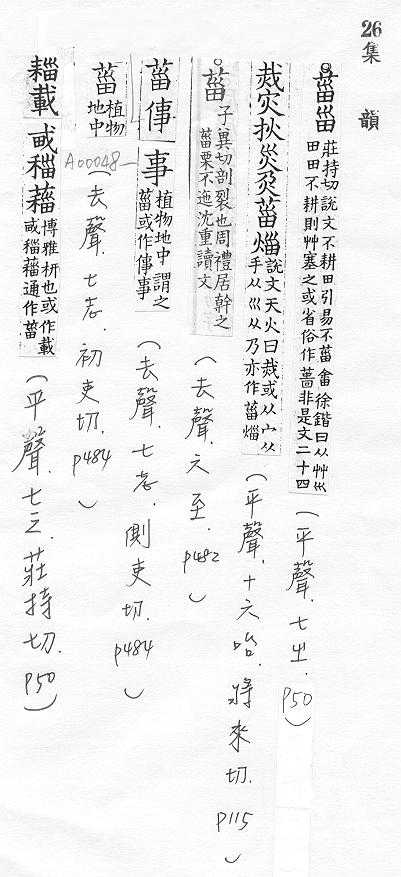 26
集韻
菑甾 莊持切說文不耕田引易不菑畬徐鍇曰从艸巛田田不耕則艸塞之或省俗作葘非是文二十四 (平聲.七㞢.p50)
烖灾扻災灾菑㷅 說文天火曰烖或从宀从手从巛从乃亦作菑㷅 (平聲.十六咍.將來切.p115)
菑 子冀切剖裂也周禮居幹之菑栗不迤沈重讀文 (去聲.六至.p482)
菑倳事 植物地中謂之菑或作倳事 (去聲.七志.側吏切.p484)
菑 植物地中 (去聲.七志.初吏切.p484)
A00048
載 䅔 博雅栟也或作載或䅔通作菑 (平聲.七之.莊持切.p50)